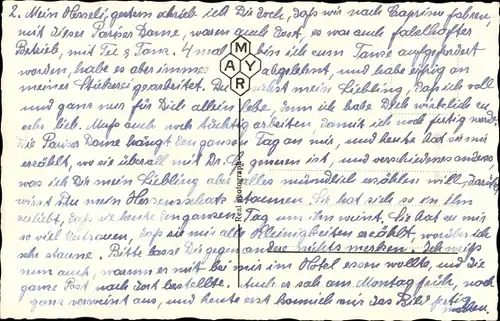 2. Mein Herzeli, gestern schrieb ich Dir doch, daß wir nach Caprino fahren,
mit dieser Pariser Dame, waren auch dort, es war auch fabelhafter
Betrieb, mit Tee & Tanz. 4 mal bin ich zum Tanze aufgefordert
worden, habe es aber immer abgelehnt, und habe eifrig an
meiner Stickerei gearbeitet. Du mein Liebling, daß ich voll
und ganz nur für Dich allein lebe, denn ich habe Dich wirklich zu
sehr lieb. Muß auch noch tüchtig arbeiten, damit ich noch fertig werde.
Die Pariser Dame hängt den ganzen Tag an mir, und heute hat sie mir
erzählt, wo sie überall mit Dr. gewesen ist, und verschiedenes anderes
was ich Dir mein Liebling aber alles mündlich erzählen will,
wirst Du mein Herzensschatz staunen. Sie hat sich so in ihn
verliebt, daß sie heute den ganzen Tag um ihn weint. Sie hat zu mir
so viel Vertrauen, daß sie mir alle Kleinigkeiten erzählt, worüber ich
sehr staune. Bitte lasse Dir gegen andere nichts merken. Ich weiß
nun auch, warum er mit bei mir im Hotel essen wollte, und die
ganze Post nach dort bestellte. Auch er sah am Montag früh, noch
ganz verweint aus, und heute erst konnte ich mir das Bild fertig
machen.
MAYR